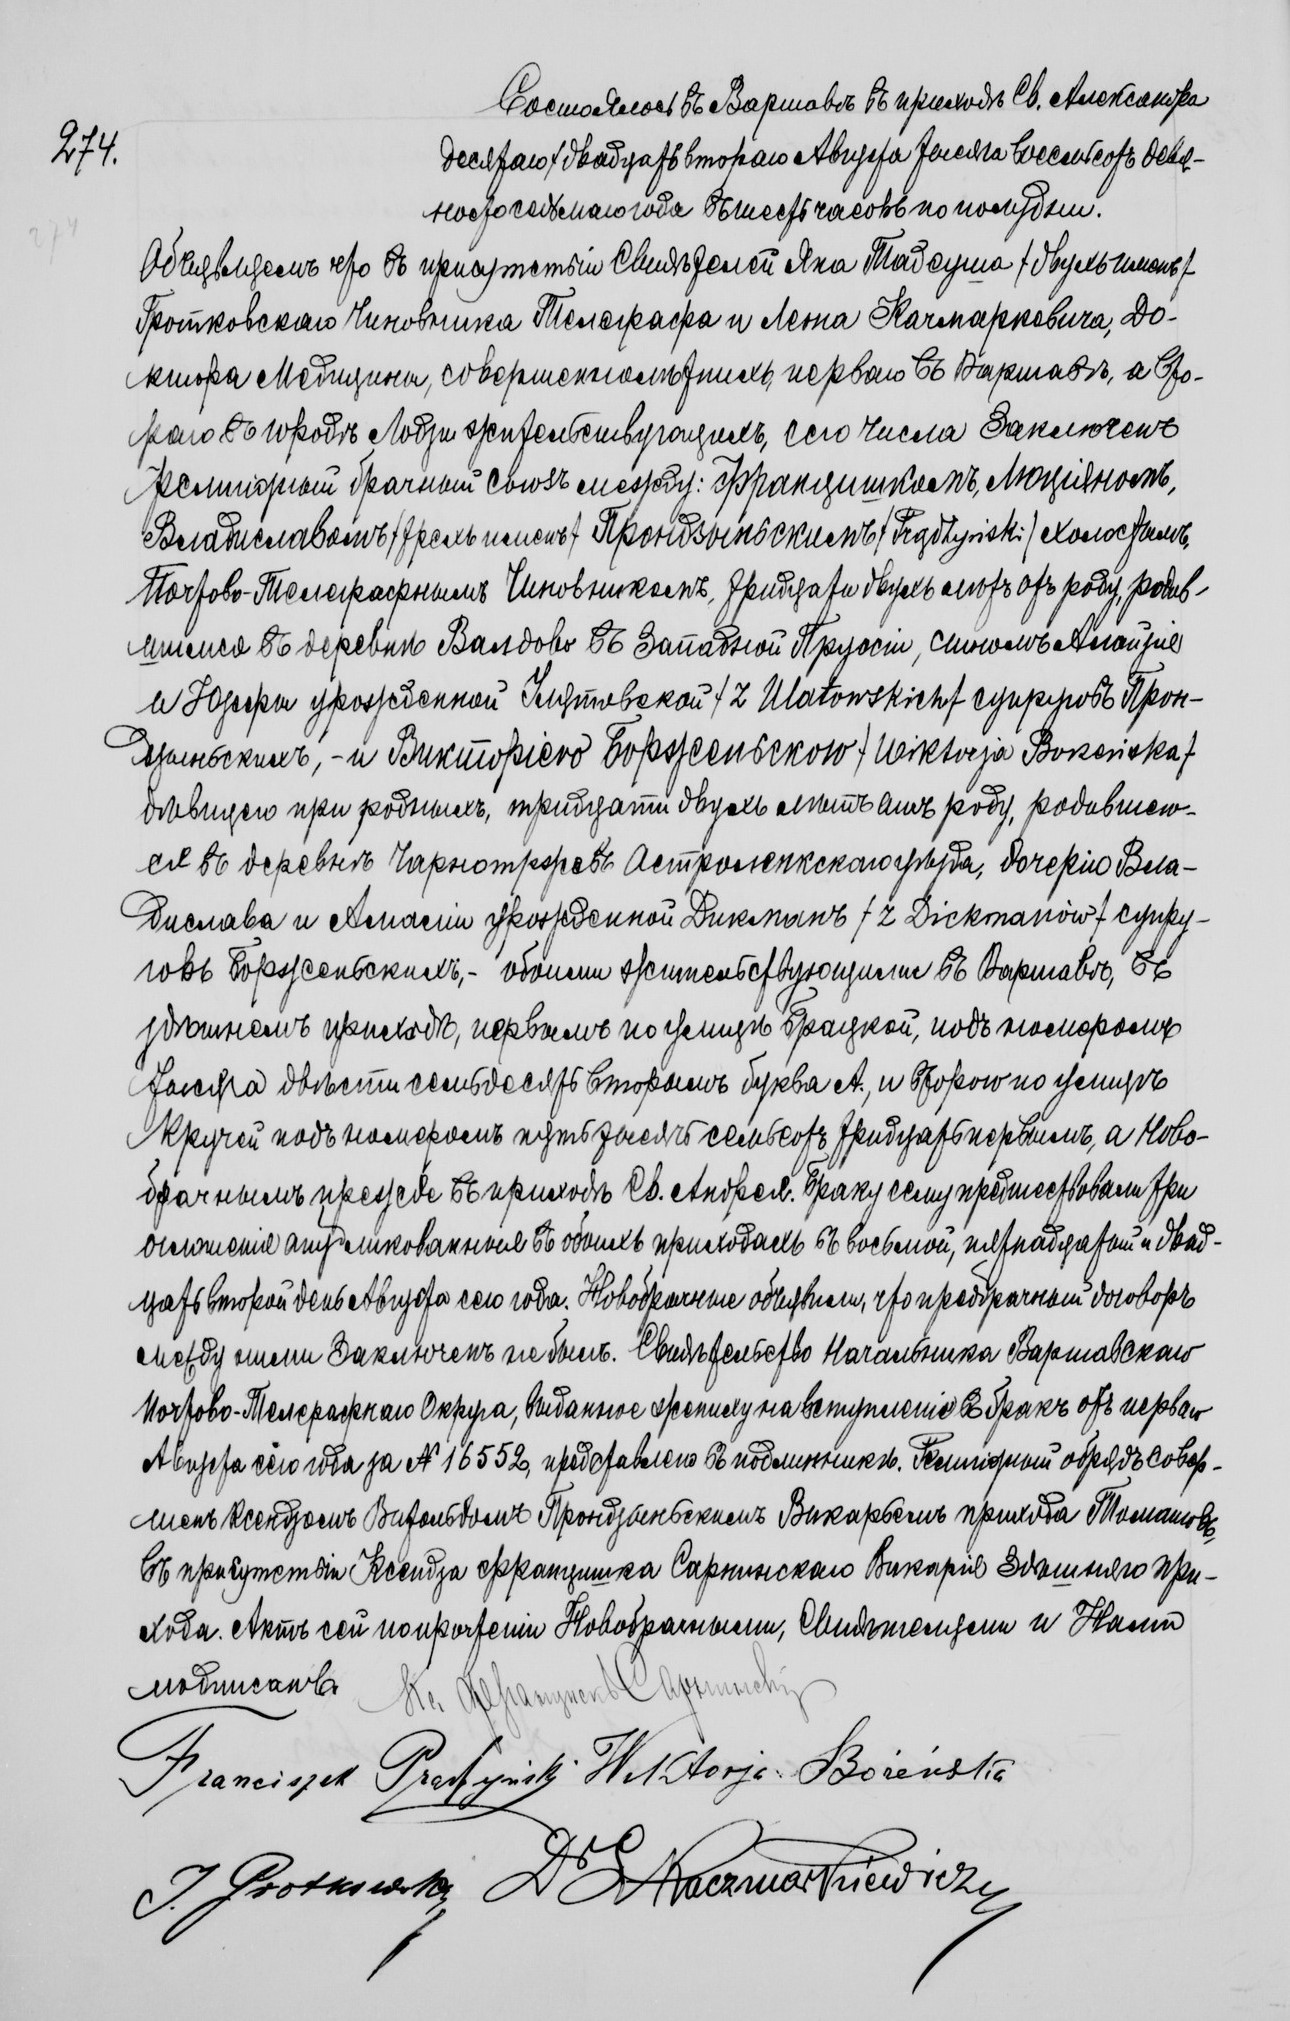 274.
Состоялось въ Варшавѣ въ приходѣ Св. Александра
десятаго/двадцать втораго Августа тысяча восемьсотъ девя-
носто седьмаго года въ шесть часовъ по полудни.
Объявляемъ что въ присутствіи Свидѣтелей Яна Тадеуша /двухъ именъ/
Гротковскаго Чиновника Телеграфа и Леона Качмаркевича, До-
ктора Медицины, совершеннолѣтнихъ, перваго въ Варшавѣ, а вто-
раго въ городѣ Лодзи жительствующихъ, сего числа Заключенъ
религіозный брачный союзъ между: Францишкомъ, Люціяномъ,
Владиславомъ /трехъ именъ/ Прондзыньскимъ /Prądzyński/ холостымъ,
Почтово-Телеграфнымъ Чиновникомъ, тридцати двухъ лѣтъ отъ роду, родив-
шимся въ деревнѣ Валдово въ Западной Пруссіи, сыномъ Алоизія
и Юзефы урожденной Улятовской /z Ulatowskich/ супруговъ Прон-
дзыньскихъ, - и Викторіею Борженьскою /Wiktorja Bożeńska/
дѣвицею при родныхъ, тридцати двухъ лѣтъ отъ роду, родившею-
ся въ деревнѣ Чарнотржевъ Остроленкскаго уѣзда, дочерію Вла-
дислава и Амаліи урожденной Дикманъ /z Dickmanów/ супру-
говъ Борженьскихъ, - обоими жительствующими въ Варшавѣ, въ
здѣшнемъ приходѣ, первымъ по улицѣ Брацкой, подъ номеромъ
тысяча двѣсти семьдесятъ вторымъ буква А., и второю по улицѣ
Кручей подъ номеромъ пять тысячъ семьсотъ тридцать первымъ, а Ново-
брачнымъ прежде въ приходѣ Св. Андрея. Браку сему предшествовали три
оглашенія опубликованныя въ обоихъ приходахъ въ восьмой, пятнадцатый и двад-
цать второй день Августа сего года. Новобрачные объявили, что предбрачный договоръ
между ними Заключенъ не былъ. Свидѣтельство Начальника Варшавскаго
Почтово-Телеграфнаго Округа, выданное жениху на вступленіе въ бракъ отъ перваго
Августа сего года за № 16552, представлено въ подлинникѣ. Религіозный обрядъ совер-
шенъ Ксендзомъ Витольдомъ Прондзыньскимъ Викарьемъ прихода Томашовъ,
въ присутствіи Ксендза Францишка Сарнинскаго Викарія Здѣшняго при-
хода. Актъ сей по прочтеніи Новобрачными, Свидѣтелями и Нами
подписанъ.
Кс. Францишекъ
Franciszek Prądzyński Wiktorja Bożeńska
J. Grotkowski Dr L Kaczmarkiewicz